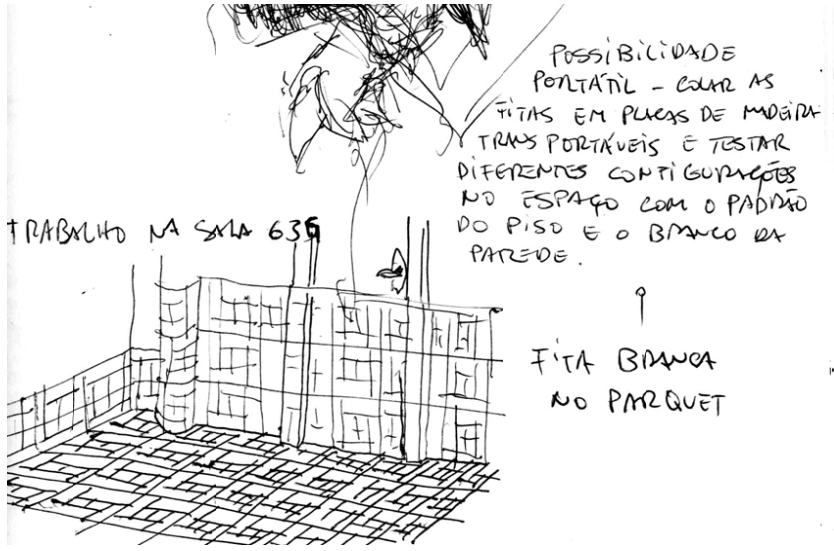 POSSIBILIDADE
PORTÁTIL - COLAR AS
FITAS EM PLACAS DE MADEIRA
TRANSPORTÁVEIS E TESTAR
DIFERENTES CONFIGURAÇÕES
NO ESPAÇO COM O PADRÃO
DO PISO E O BRANCO DA
PAREDE.
TRABALHO NA SALA 636
FITA BRANCA
NO PARQUET